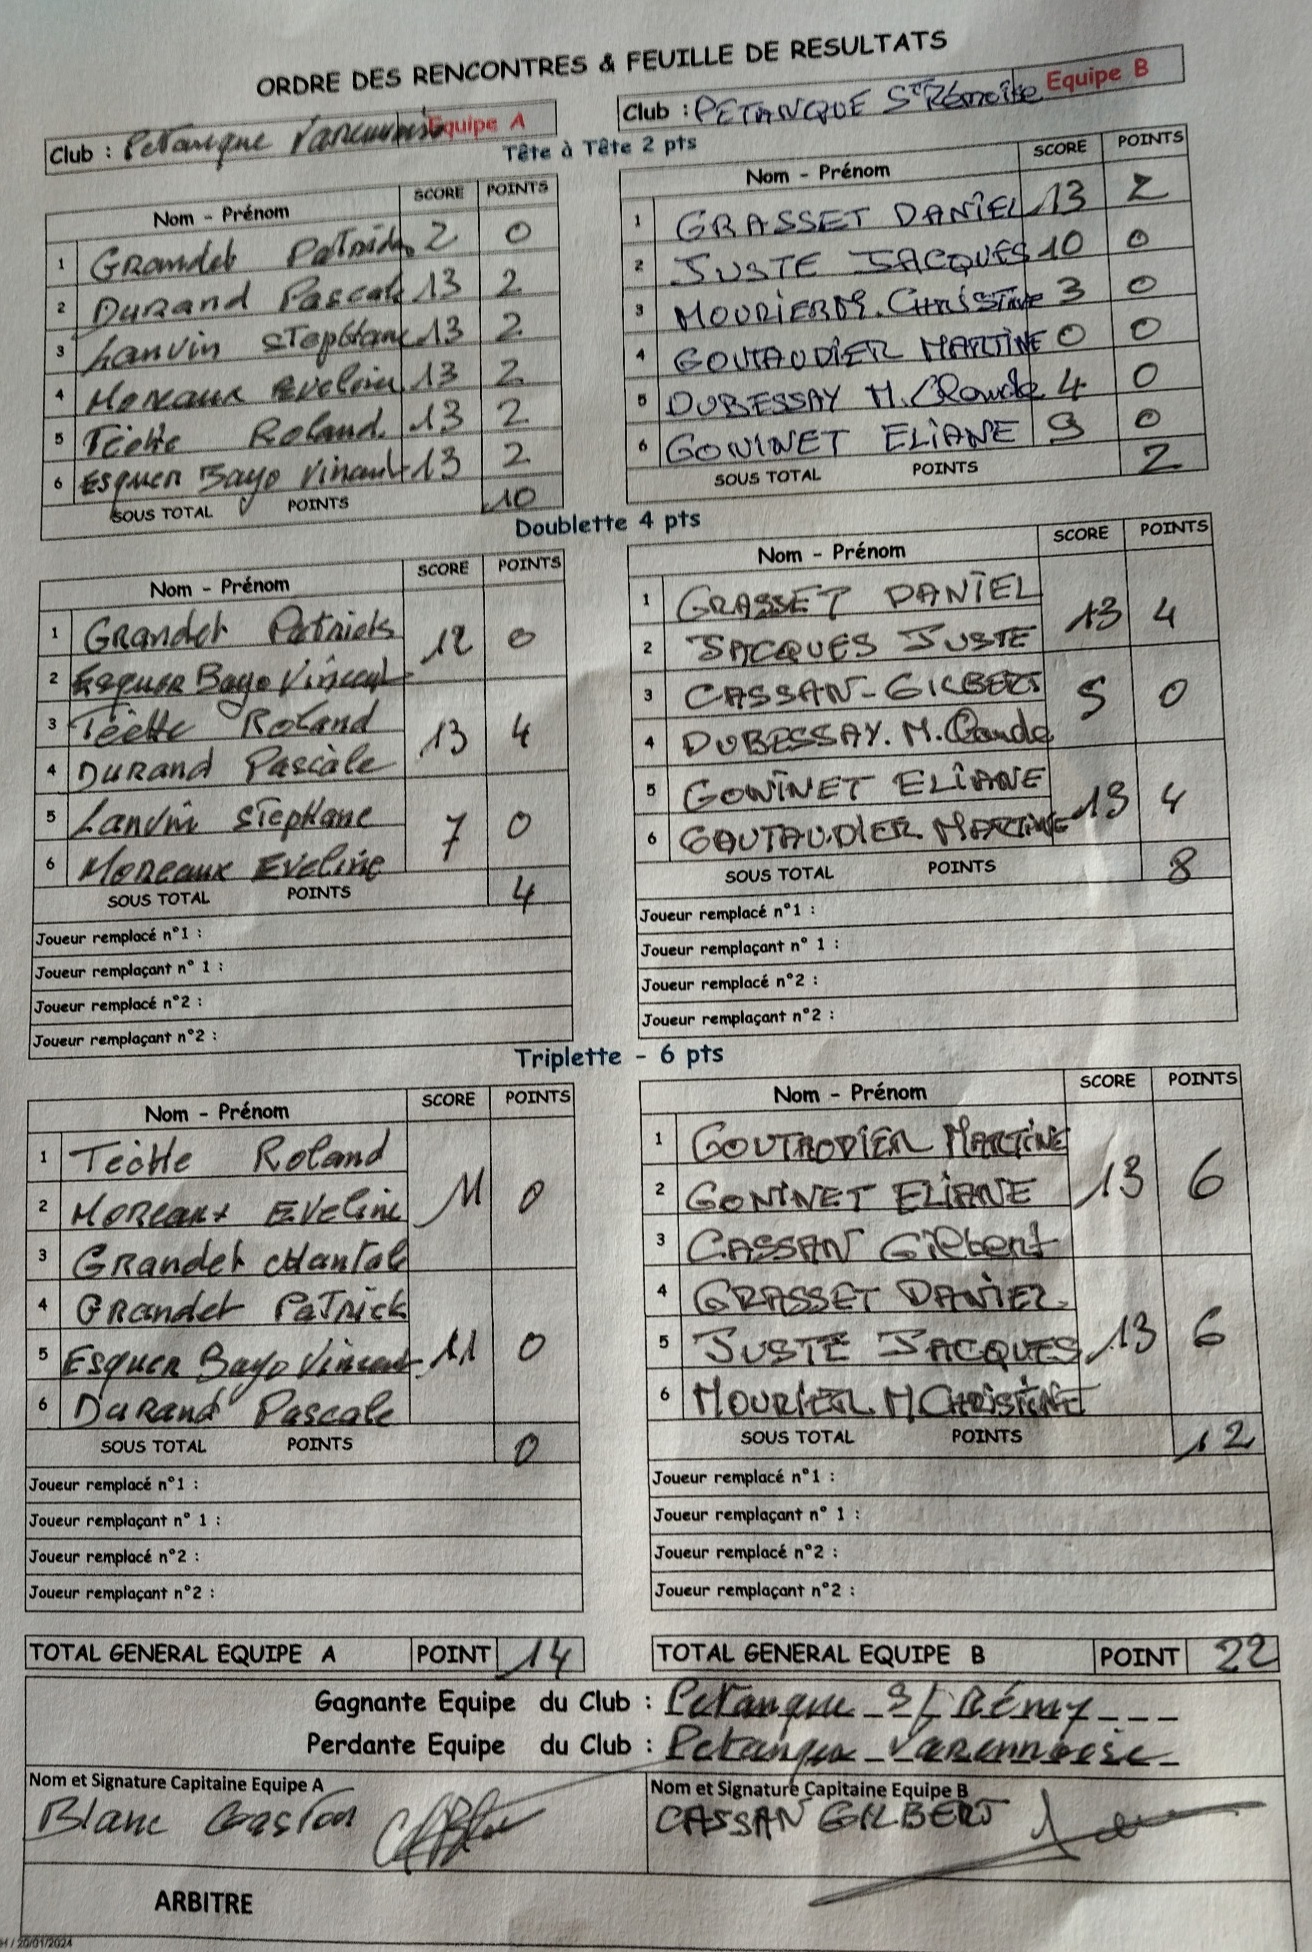 ORDRE DES RENCONTRES & FEUILLE DE RESULTATS
Club : Petanque Varennoise Equipe A
Club : PETANCQUE St Rémoise Equipe B
Tête à Tête 2 pts
Nom - Prénom SCORE POINTS
1 Grandet Patrick 2 0
2 Durand Pascale 13 2
3 Lanvin Stephane 13 2
4 Moreaux Eveline 13 2
5 Teòtte Roland 13 2
6 Esquer Bayo Vincent 13 2
SOUS TOTAL POINTS 10
Nom - Prénom SCORE POINTS
1 GRASSET DANIEL 13 2
2 JUSTE JACQUES 10 0
3 MOURIER M. Christine 3 0
4 GOUTAUDIER MARTINE 0 0
5 DUBESSAY M. Claude 4 0
6 GONINET ELIANE 9 0
SOUS TOTAL POINTS 2
Doublette 4 pts
Nom - Prénom SCORE POINTS
1 Grandet Patrick 12 0
2 Esquer Bayo Vincent
3 Teòtte Roland 13 4
4 Durand Pascale
5 Lanvin Stephane 7 0
6 Moreaux Eveline
SOUS TOTAL POINTS 4
Joueur remplacé n°1 :
Joueur remplaçant n° 1 :
Joueur remplacé n°2 :
Joueur remplaçant n°2 :
Nom - Prénom SCORE POINTS
1 GRASSET DANIEL 13 4
2 JACQUES JUSTE
3 CASSAN-GILBERT 5 0
4 DUBESSAY. M. Claude
5 GONINET ELIANE 13 4
6 GOUTAUDIER. MARTINE
SOUS TOTAL POINTS 8
Joueur remplacé n°1 :
Joueur remplaçant n° 1 :
Joueur remplacé n°2 :
Joueur remplaçant n°2 :
Triplette - 6 pts
Nom - Prénom SCORE POINTS
1 Teòtte Roland
2 Moreaux Eveline 11 0
3 Grandet Chantal
4 Grandet Patrick
5 Esquer Bayo Vincent 11 0
6 Durand Pascale
SOUS TOTAL POINTS 0
Joueur remplacé n°1 :
Joueur remplaçant n° 1 :
Joueur remplacé n°2 :
Joueur remplaçant n°2 :
Nom - Prénom SCORE POINTS
1 GOUTAODIER MARTINE
2 GONINET ELIANE 13 6
3 CASSAN Gilbert
4 GRASSET DANIEL
5 JUSTE JACQUES 13 6
6 MOURIER M CHRISTINE
SOUS TOTAL POINTS 12
Joueur remplacé n°1 :
Joueur remplaçant n° 1 :
Joueur remplacé n°2 :
Joueur remplaçant n°2 :
TOTAL GENERAL EQUIPE A POINT 14
TOTAL GENERAL EQUIPE B POINT 22
Gagnante Equipe du Club : Petanque St Rémy
Perdante Equipe du Club : Petanque Varennoise
Nom et Signature Capitaine Equipe A
Blanc Gaston
Nom et Signature Capitaine Equipe B
CASSAN GILBERT
ARBITRE
/ 20/01/2024